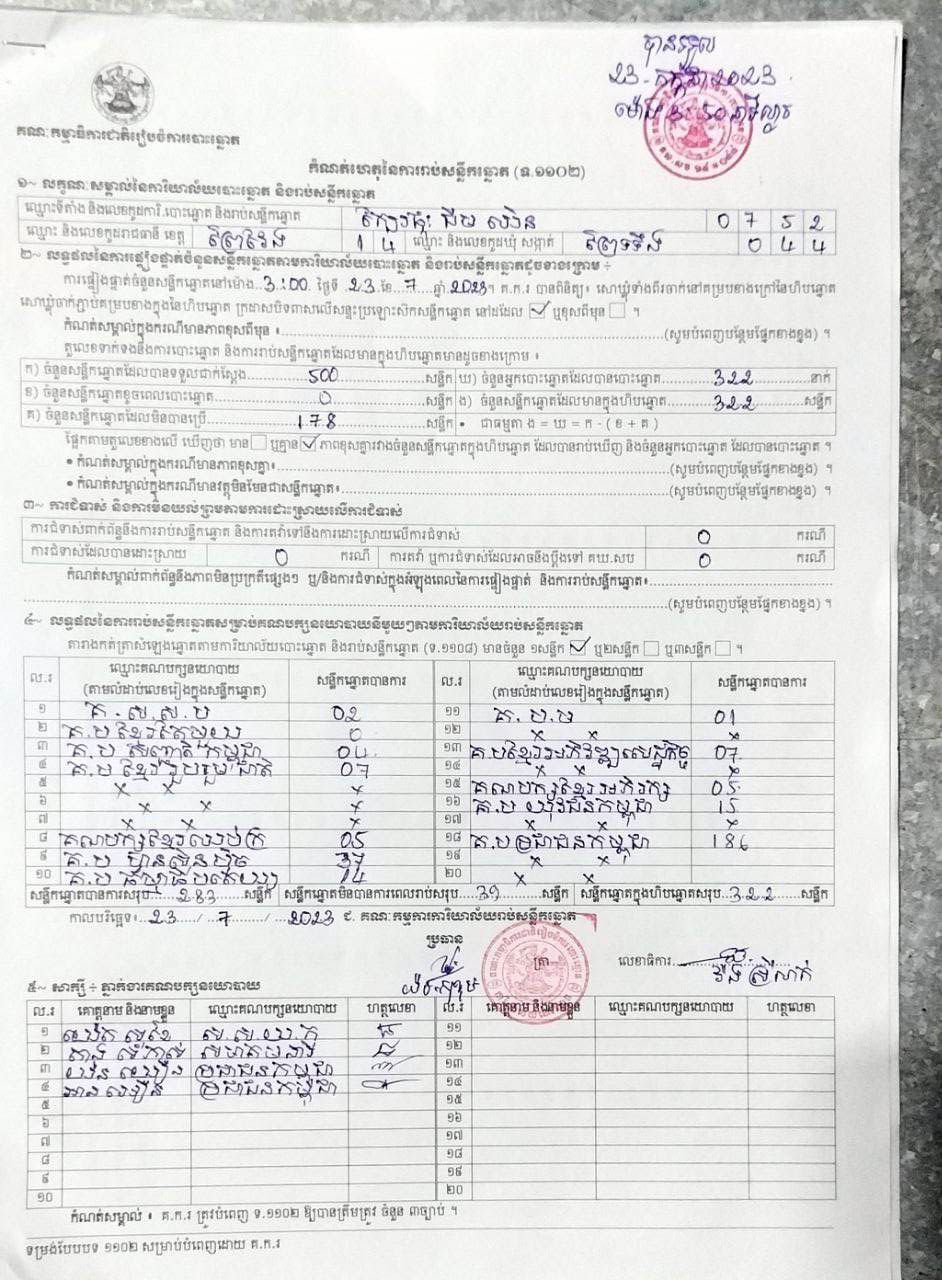 បានទទួល
23-កក្កដា 2023
គណៈកម្មាធិការជាតិរៀបចំការបោះឆ្នោត
កំណត់ហេតុនៃការរាប់សន្លឹកឆ្នោត (ទ.១១០២)
១~ លក្ខណៈសម្គាល់នៃការិយាល័យបោះឆ្នោត និងរាប់សន្លឹកឆ្នោត
ឈ្មោះទីតាំង និងលេខកូដការិ.បោះឆ្នោត និងរាប់សន្លឹកឆ្នោត 0 7 5 2
ឈ្មោះ និងលេខកូដរាជធានី ខេត្ត ព្រៃវែង 1 4 ឈ្មោះ និងលេខកូដឃុំ សង្កាត់ ព្រៃទទឹង 0 4 4
២~ លទ្ធផលនៃការផ្ទៀងផ្ទាត់ចំនួនសន្លឹកឆ្នោតតាមការិយាល័យបោះឆ្នោត និងរាប់សន្លឹកឆ្នោតដូចខាងក្រោម ÷
ការផ្ទៀងផ្ទាត់ចំនួនសន្លឹកឆ្នោតនៅម៉ោង..3:00. ថ្ងៃទី 23.ខែ..7....ឆ្នាំ.2023។ គ.ក.រ បានពិនិត្យ៖ សោឃ្លុំទាំងពីរចាក់នៅគម្របខាងក្រៅនៃហិបឆ្នោត
សោឃ្លុំចាក់ភ្ជាប់គម្របខាងក្នុងនៃហិបឆ្នោត ក្រដាសបិទពាសលើសន្ទះប្រឡោះសិកសន្លឹកឆ្នោត នៅដដែល ☑ ឬខុសពីមុន ☐ ។
កំណត់សម្គាល់ក្នុងករណីមានភាពខុសពីមុន ៖...(សូមបំពេញបន្ថែមផ្នែកខាងខ្នង) ។
តួលេខទាក់ទងនឹងការបោះឆ្នោត និងការរាប់សន្លឹកឆ្នោតដែលមានក្នុងហិបឆ្នោតមានដូចខាងក្រោម ៖
ក) ចំនួនសន្លឹកឆ្នោតដែលបានទទួលជាក់ស្ដែង...500...សន្លឹក ឃ) ចំនួនអ្នកបោះឆ្នោតដែលបានបោះឆ្នោត...322...នាក់
ខ) ចំនួនសន្លឹកឆ្នោតខូចពេលបោះឆ្នោត...0...សន្លឹក ង) ចំនួនសន្លឹកឆ្នោតដែលមានក្នុងហិបឆ្នោត...322...សន្លឹក
គ) ចំនួនសន្លឹកឆ្នោតដែលមិនបានប្រើ...178...សន្លឹក • ជាធម្មតា ង = ឃ = ក - ( ខ + គ )
ផ្អែកតាមតួលេខខាងលើ ឃើញថា មាន ☐ ឬគ្មាន ☑ ភាពខុសគ្នារវាងចំនួនសន្លឹកឆ្នោតក្នុងហិបឆ្នោត ដែលបានរាប់ឃើញ និងចំនួនអ្នកបោះឆ្នោត ដែលបានបោះឆ្នោត ។
• កំណត់សម្គាល់ក្នុងករណីមានភាពខុសគ្នា៖...(សូមបំពេញបន្ថែមផ្នែកខាងខ្នង) ។
• កំណត់សម្គាល់ក្នុងករណីមានវត្ថុមិនមែនជាសន្លឹកឆ្នោត៖...(សូមបំពេញបន្ថែមផ្នែកខាងខ្នង) ។
៣~ ការជំទាស់ និងការមិនយល់ព្រមតាមការដោះស្រាយលើការជំទាស់
ការជំទាស់ពាក់ព័ន្ធនឹងការរាប់សន្លឹកឆ្នោត និងការតវ៉ាទៅនឹងការដោះស្រាយលើការជំទាស់ 0 ករណី
ការជំទាស់ដែលបានដោះស្រាយ 0 ករណី ការតវ៉ា ឬការជំទាស់ដែលអាចនឹងប្ដឹងទៅ គឃ.សប 0 ករណី
កំណត់សម្គាល់ពាក់ព័ន្ធនឹងភាពមិនប្រក្រតីផ្សេងៗ ឬ/និងការជំទាស់ក្នុងអំឡុងពេលនៃការផ្ទៀងផ្ទាត់ និងការរាប់សន្លឹកឆ្នោត៖...
...(សូមបំពេញបន្ថែមផ្នែកខាងខ្នង) ។
៤~ លទ្ធផលនៃការរាប់សន្លឹកឆ្នោតសម្រាប់គណបក្សនយោបាយនីមួយៗតាមការិយាល័យរាប់សន្លឹកឆ្នោត
តារាងកត់ត្រាសំឡេងឆ្នោតតាមការិយាល័យបោះឆ្នោត និងរាប់សន្លឹកឆ្នោត (ទ.១១០៨) មានចំនួន ១សន្លឹក ☑ ឬ២សន្លឹក ☐ ឬ៣សន្លឹក ☐ ។
ល.រ ឈ្មោះគណបក្សនយោបាយ (តាមលំដាប់លេខរៀងក្នុងសន្លឹកឆ្នោត) សន្លឹកឆ្នោតបានការ ល.រ ឈ្មោះគណបក្សនយោបាយ (តាមលំដាប់លេខរៀងក្នុងសន្លឹកឆ្នោត) សន្លឹកឆ្នោតបានការ
១ 02 ១១ 01
២ គ.ប ខ្មែរតែមួយ 0 ១២ x x
៣ គ.ប សញ្ជាតិកម្ពុជា 04 ១៣ គ.បខ្មែរអភិវឌ្ឍសេដ្ឋកិច្ច 07
៤ គ.ប ខ្មែររួបរួមជាតិ 07 ១៤ x x x
៥ x x x ១៥ គណបក្សខ្មែរអភិរក្ស 05
៦ x x x ១៦ គ.ប យុវជនកម្ពុជា 15
៧ x x x ១៧ x x x
៨ គណបក្សខ្មែរឈប់ក្រ 05 ១៨ គ.បប្រជាជនកម្ពុជា 186
៩ គ.ប ហ្វ៊ុនស៊ិនប៉ិច 37 ១៩ x x
១០ គ.ប ធម្មាធិបតេយ្យ 14 ២០ x x
សន្លឹកឆ្នោតបានការសរុប...283...សន្លឹក សន្លឹកឆ្នោតមិនបានការពេលរាប់សរុប..39...សន្លឹក សន្លឹកឆ្នោតក្នុងហិបឆ្នោតសរុប..322...សន្លឹក
កាលបរិច្ឆេទ៖..23..../...7..../...2023 ជ. គណៈកម្មការការិយាល័យរាប់សន្លឹកឆ្នោត
ប្រធាន
ត្រា
លេខាធិការ
៥~ សាក្សី ÷ ភ្នាក់ងារគណបក្សនយោបាយ
ល.រ គោត្តនាម និងនាមខ្លួន ឈ្មោះគណបក្សនយោបាយ ហត្ថលេខា ល.រ គោត្តនាម និងនាមខ្លួន ឈ្មោះគណបក្សនយោបាយ ហត្ថលេខា
១ ១១
២ ១២
៣ ប្រជាជនកម្ពុជា ១៣
៤ ប្រជាជនកម្ពុជា ១៤
៥ ១៥
៦ ១៦
៧ ១៧
៨ ១៨
៩ ១៩
១០ ២០
កំណត់សម្គាល់ ៖ គ.ក.រ ត្រូវបំពេញ ទ.១១០២ ឱ្យបានត្រឹមត្រូវ ចំនួន ៣ច្បាប់ ។
ទម្រង់បែបបទ ១១០២ សម្រាប់បំពេញដោយ គ.ក.រ